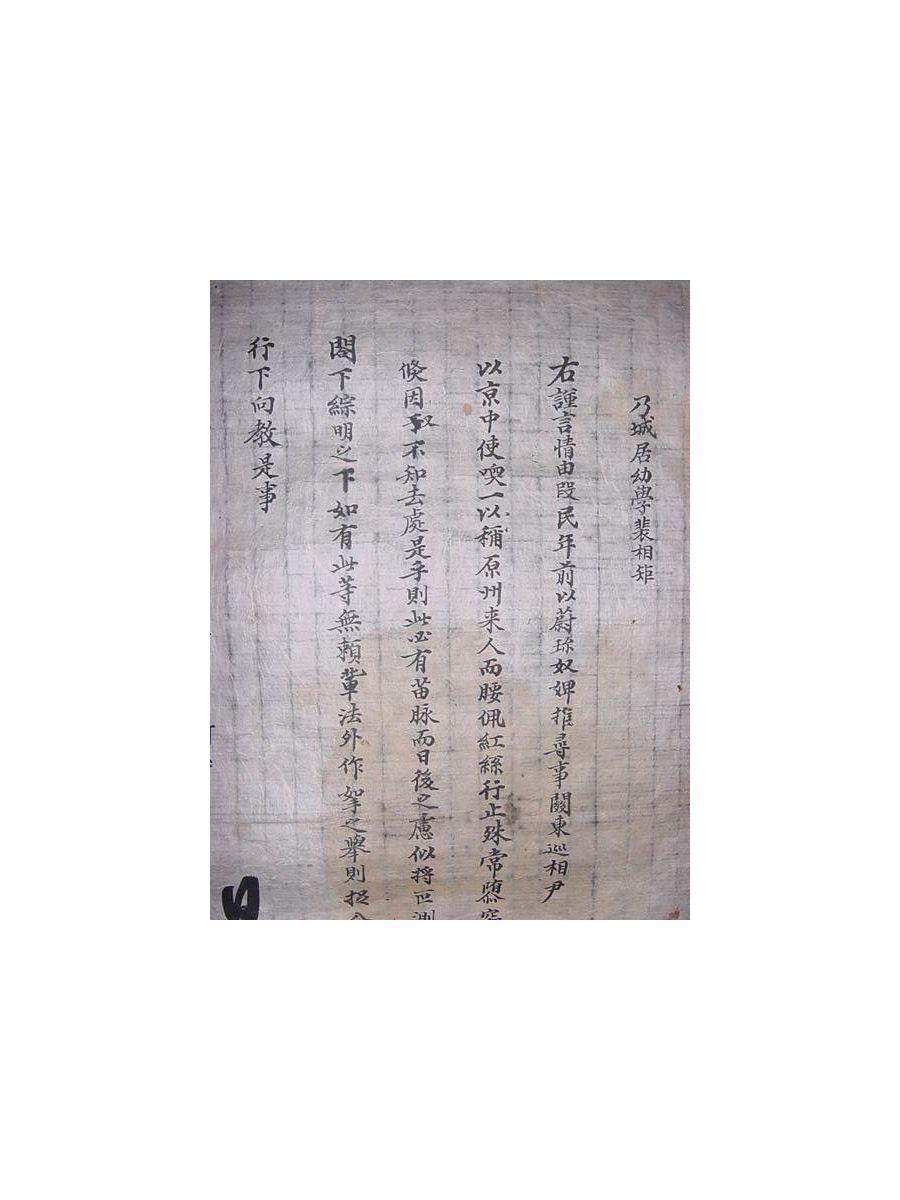 乃城居幼學裴相矩
右謹言情由段民年前以蔚珎奴婢推尋事關東巡相尹
以京中使喚一以稱原州来人而腰佩紅絲行止殊常
倏因 不知去處是乎則此必有苗脉而日後之慮似將叵測
閤下綜明之下如有此等無賴輩法外作拏之擧則捉
行下向教是事